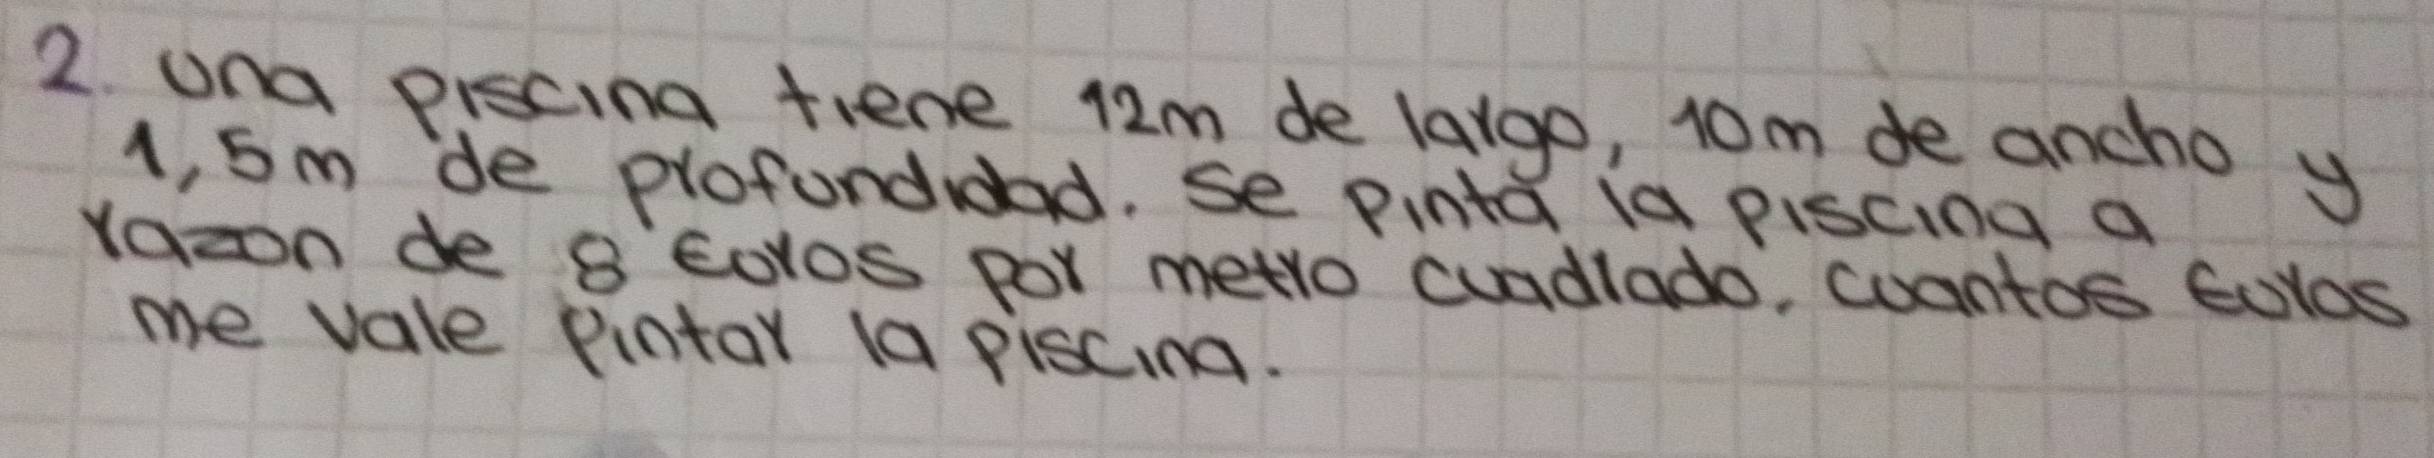 2. Una piscina tiene 12m de largo, 10m de ancho y
1,5m de profundidad. Se pinta la piscina a
razon de 8 Euros por metro cuadrado. Cuantos Euros
me vale Pintar la piscina.